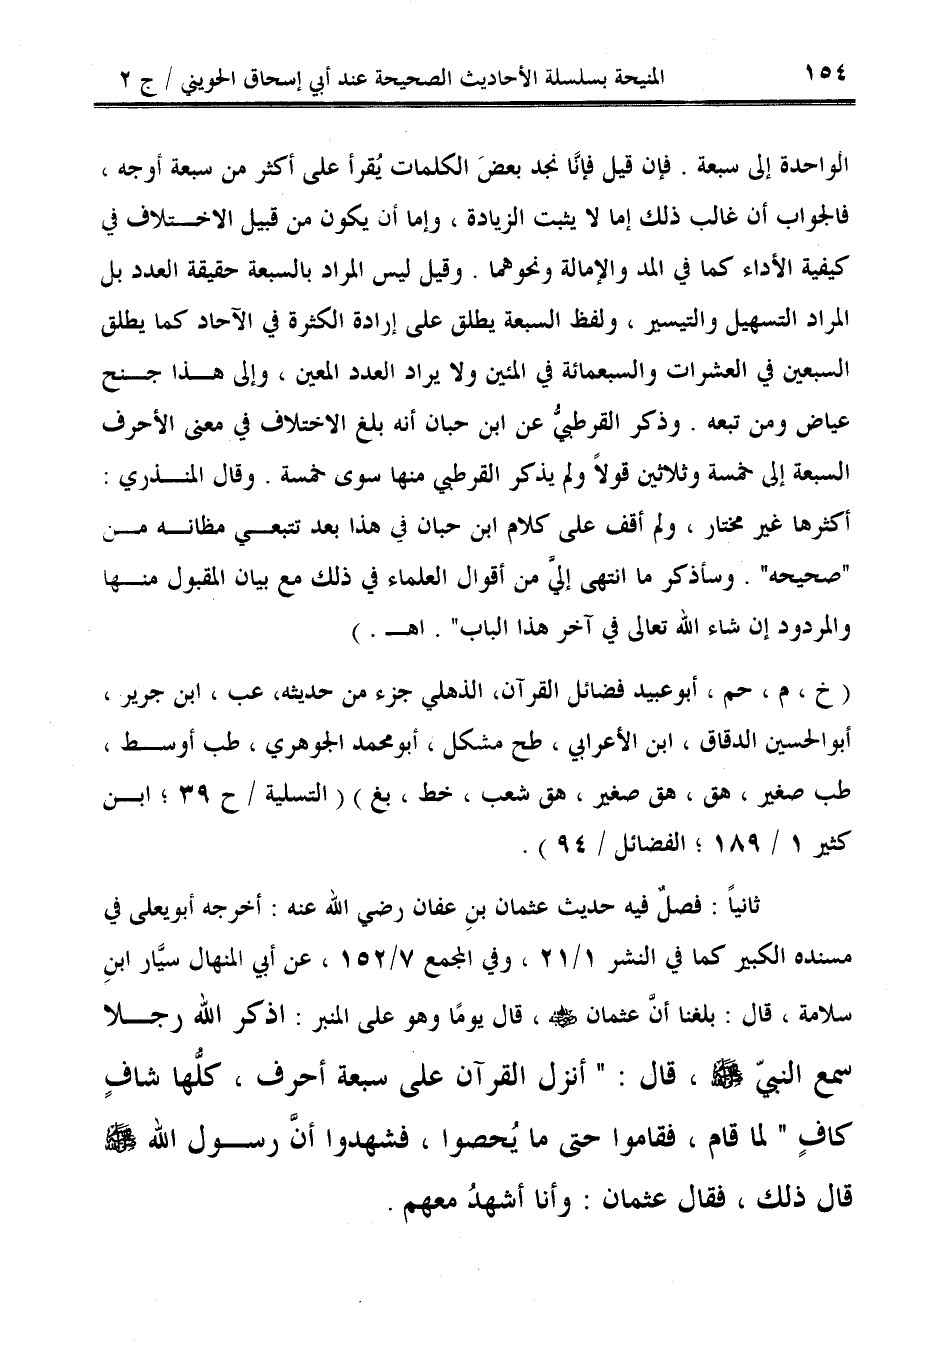 ١٥٤ المنيحة بسلسلة الأحاديث الصحيحة عند أبي إسحاق الحويني / ج ٢
الواحدة إلى سبعة . فإن قيل فإنَّا نجد بعضَ الكلمات يُقرأ على أكثر من سبعة أوجه ،
فالجواب أن غالب ذلك إما لا يثبت الزيادة ، وإما أن يكون من قبيل الاختـلاف في
كيفية الأداء كما في المد والإمالة ونحوهما . وقيل ليس المراد بالسبعة حقيقة العدد بل
المراد التسهيل والتيسير ، ولفظ السبعة يطلق على إرادة الكثرة في الآحاد كما يطلق
السبعين في العشرات والسبعمائة في المئين ولا يراد العدد المعين ، وإلى هـذا جـنح
عياض ومن تبعه . وذكر القرطبيُّ عن ابن حبان أنه بلغ الاختلاف في معنى الأحرف
السبعة إلى خمسة وثلاثين قولاً ولم يذكر القرطبي منها سوى خمسة . وقال المنـذري :
أكثرها غير مختار ، ولم أقف على كلام ابن حبان في هذا بعد تتبعـي مظانـه مـن
"صحيحه" . وسأذكر ما انتهى إليَّ من أقوال العلماء في ذلك مع بيان المقبول منـها
والمردود إن شاء الله تعالى في آخر هذا الباب" . اهـ . )
( خ ، م ، حم ، أبوعبيد فضائل القرآن، الذهلي جزء من حديثه، عب ، ابن جرير ،
أبوالحسين الدقاق ، ابن الأعرابي ، طح مشكل ، أبومحمد الجوهري ، طب أوسـط ،
طب صغير ، هق ، هق صغير ، هق شعب ، خط ، بغ ) ( التسلية / ح ٣٩ ؛ ابـن
كثير ١ / ١٨٩ ؛ الفضائل / ٩٤ ) .
ثانياً : فصلٌ فيه حديث عثمان بنِ عفان رضي الله عنه : أخرجه أبويعلى في
مسنده الكبير كما في النشر ٢١/١ ، وفي المجمع ١٥٢/٧ ، عن أبي المنهال سيَّار ابنِ
سلامة ، قال : بلغنا أنَّ عثمان رضي الله عنه ، قال يومًا وهو على المنبر : اذكر الله رجـلا
سمع النبيّ ﷺ ، قال : " أنزل القرآن على سبعة أحرف ، كلُّها شافٍ
كافٍ " لما قام ، فقاموا حتى ما يُحصوا ، فشهدوا أنَّ رسـول الله ﷺ
قال ذلك ، فقال عثمان : وأنا أشهدُ معهم .